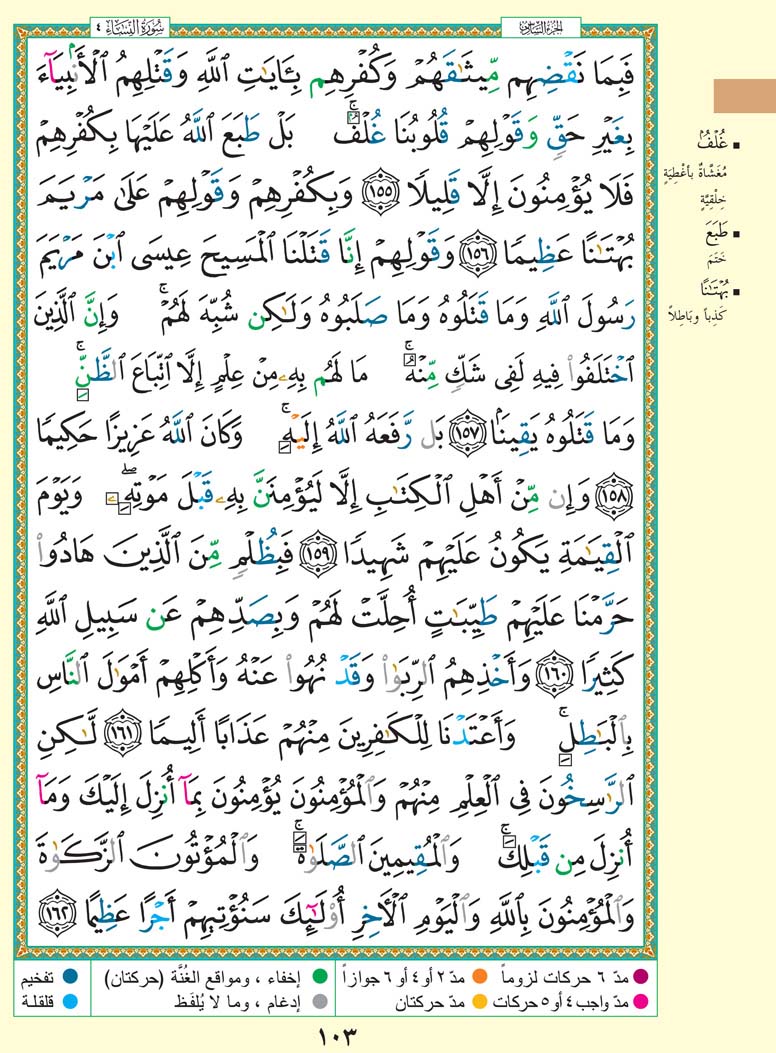 الجزء السادس
سُورَةُ النِّسَاءِ ٤
فَبِمَا نَقْضِهِم مِّيثَٰقَهُمْ وَكُفْرِهِم بِـَٔايَٰتِ ٱللَّهِ وَقَتْلِهِمُ ٱلْأَنۢبِيَآءَ
بِغَيْرِ حَقٍّ وَقَوْلِهِمْ قُلُوبُنَا غُلْفٌۢ ۚ بَلْ طَبَعَ ٱللَّهُ عَلَيْهَا بِكُفْرِهِمْ
فَلَا يُؤْمِنُونَ إِلَّا قَلِيلًا ١٥٥ وَبِكُفْرِهِمْ وَقَوْلِهِمْ عَلَىٰ مَرْيَمَ
بُهْتَٰنًا عَظِيمًا ١٥٦ وَقَوْلِهِمْ إِنَّا قَتَلْنَا ٱلْمَسِيحَ عِيسَى ٱبْنَ مَرْيَمَ
رَسُولَ ٱللَّهِ وَمَا قَتَلُوهُ وَمَا صَلَبُوهُ وَلَٰكِن شُبِّهَ لَهُمْ ۚ وَإِنَّ ٱلَّذِينَ
ٱخْتَلَفُوا۟ فِيهِ لَفِى شَكٍّ مِّنْهُ ۚ مَا لَهُم بِهِۦ مِنْ عِلْمٍ إِلَّا ٱتِّبَاعَ ٱلظَّنِّ ۚ
وَمَا قَتَلُوهُ يَقِينًۢا ١٥٧ بَل رَّفَعَهُ ٱللَّهُ إِلَيْهِ ۚ وَكَانَ ٱللَّهُ عَزِيزًا حَكِيمًا
١٥٨ وَإِن مِّنْ أَهْلِ ٱلْكِتَٰبِ إِلَّا لَيُؤْمِنَنَّ بِهِۦ قَبْلَ مَوْتِهِۦ ۖ وَيَوْمَ
ٱلْقِيَٰمَةِ يَكُونُ عَلَيْهِمْ شَهِيدًا ١٥٩ فَبِظُلْمٍ مِّنَ ٱلَّذِينَ هَادُوا۟
حَرَّمْنَا عَلَيْهِمْ طَيِّبَٰتٍ أُحِلَّتْ لَهُمْ وَبِصَدِّهِمْ عَن سَبِيلِ ٱللَّهِ
كَثِيرًا ١٦٠ وَأَخْذِهِمُ ٱلرِّبَوٰا۟ وَقَدْ نُهُوا۟ عَنْهُ وَأَكْلِهِمْ أَمْوَٰلَ ٱلنَّاسِ
بِٱلْبَٰطِلِ ۚ وَأَعْتَدْنَا لِلْكَٰفِرِينَ مِنْهُمْ عَذَابًا أَلِيمًا ١٦١ لَّٰكِنِ
ٱلرَّٰسِخُونَ فِى ٱلْعِلْمِ مِنْهُمْ وَٱلْمُؤْمِنُونَ يُؤْمِنُونَ بِمَآ أُنزِلَ إِلَيْكَ وَمَآ
أُنزِلَ مِن قَبْلِكَ ۚ وَٱلْمُقِيمِينَ ٱلصَّلَوٰةَ ۚ وَٱلْمُؤْتُونَ ٱلزَّكَوٰةَ
وَٱلْمُؤْمِنُونَ بِٱللَّهِ وَٱلْيَوْمِ ٱلْأَخِرِ أُو۟لَٰٓئِكَ سَنُؤْتِيهِمْ أَجْرًا عَظِيمًا ١٦٢
غُلْفٌۢ
مُغَشَّاةٌ بأَغْطِيَةٍ
خِلْقِيَّةٍ
طَبَعَ
خَتَمَ
بُهْتَٰنًا
كَذِباً وبَاطِلاً
مدّ ٦ حركات لزوماً
مدّ ٢ أو ٤ أو ٦ جوازاً
إخفاء ، ومواقع الغُنَّة (حركتان)
تفخيم
مدّ واجب ٤ أو ٥ حركات
مدّ حركتان
إدغام ، وما لا يُلفَظ
قلقلة
١٠٣